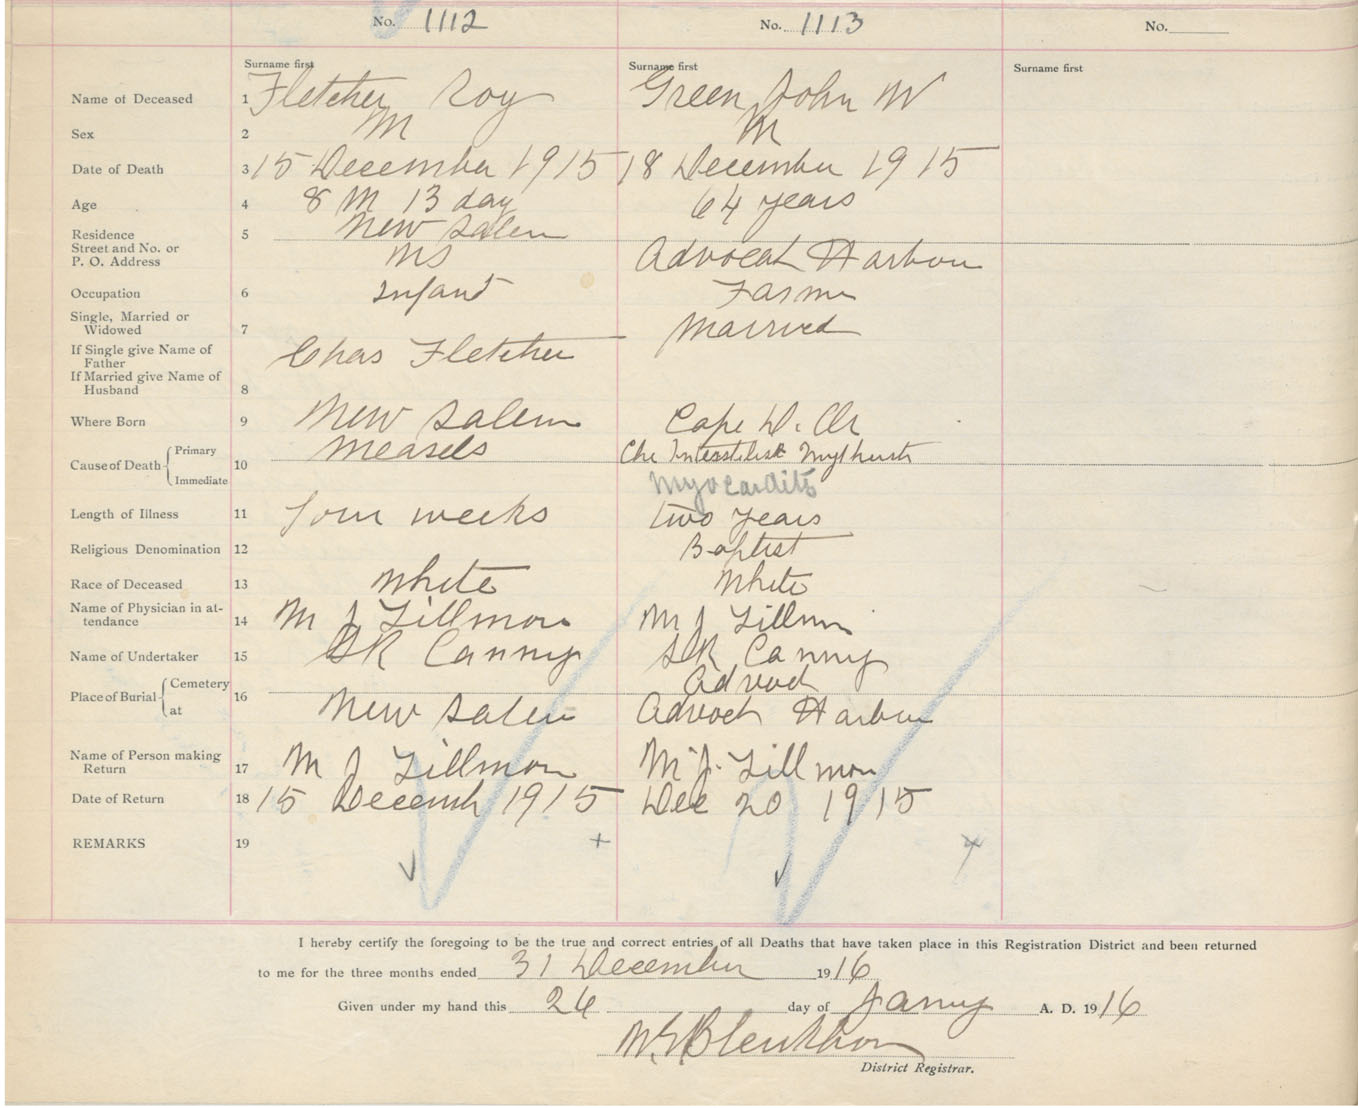 No. 1112 No. 1113 No.
Surname first Surname first Surname first
Name of Deceased 1 Fletcher Roy Green John W
Sex 2 M M
Date of Death 3 15 December 1915 18 December 1915
Age 4 8 M 13 day 64 years
Residence 5 New Salem
Street and No. or
P. O. Address NS Advocat Harbour
Occupation 6 Infant Farmer
Single, Married or
Widowed 7 Married
If Single give Name of
Father Chas Fletcher
If Married give Name of
Husband 8
Where Born 9 New Salem Cape D. Or
Cause of Death Primary 10 Measels Chr
Immediate Myocarditis
Length of Illness 11 Four weeks two years
Religious Denomination 12 Baptist
Race of Deceased 13 White White
Name of Physician in at-
tendance 14 M J Tillmon M J Tillmon
Name of Undertaker 15 SR Canny SR Canny
Place of Burial Cemetery 16 Advoct
at New Salem Advoct Harbour
Name of Person making
Return 17 M J Tillmon M. J. Tillmon
Date of Return 18 15 Decemb 1915 Dec 20 1915
REMARKS 19
I hereby certify the foregoing to be the true and correct entries of all Deaths that have taken place in this Registration District and been returned
to me for the three months ended 31 December 1916
Given under my hand this 26 day of Jamy A. D. 1916
Blenkhorn
District Registrar.